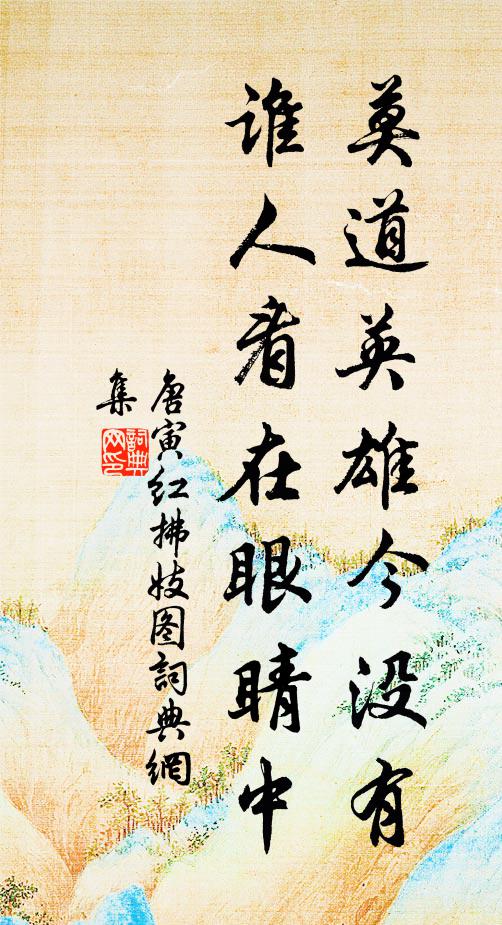 莫道英雄今没有
谁人看在眼睛中
唐寅红拂妓图詞典網
集
詞典网印